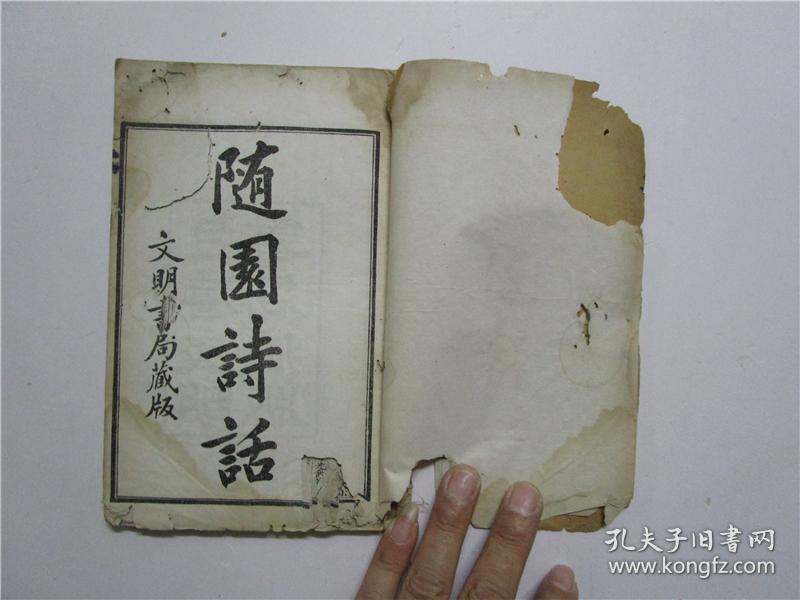 随園詩話
文明書局藏版
孔夫子旧书网
www.kongfz.com